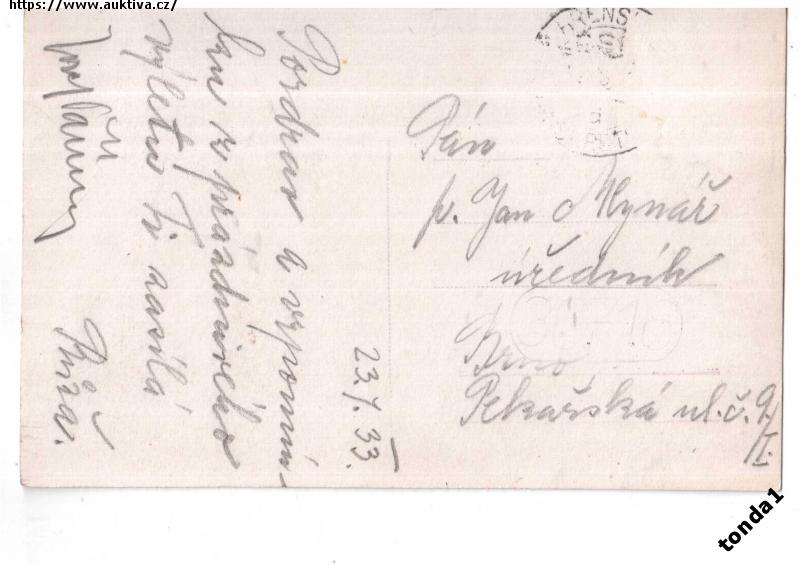 https://www.auktiva.cz/
Pozdrav a vzpomín-
ku z prázdninového
výletu Ti zasílá
Růža.
23.7.33.
HŘENS
Pán
p. Jan Mlynář
úředník
Brno
Pekařská ul. č. 9/I.
tonda1